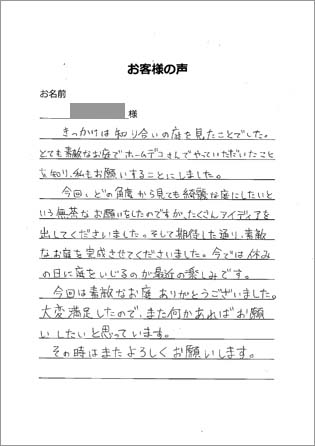 お客様の声
お名前
様
きっかけは知り合いの庭を見たことでした。
とても素敵なお庭でホームデコさんでやっていただいたこと
を知り、私もお願いすることにしました。
今回、どの角度から見ても綺麗な庭にしたいと
いう無茶なお願いもしたのですが、たくさんアイディアを
出してくださいました。そして期待した通り、素敵
なお庭を完成させてくださいました。今では休み
の日に庭をいじるのが最近の楽しみです。
今回は素敵なお庭ありがとうございました。
大変満足したので、また何かあればお願
いしたいと思っています。
その時はまたよろしくお願いします。